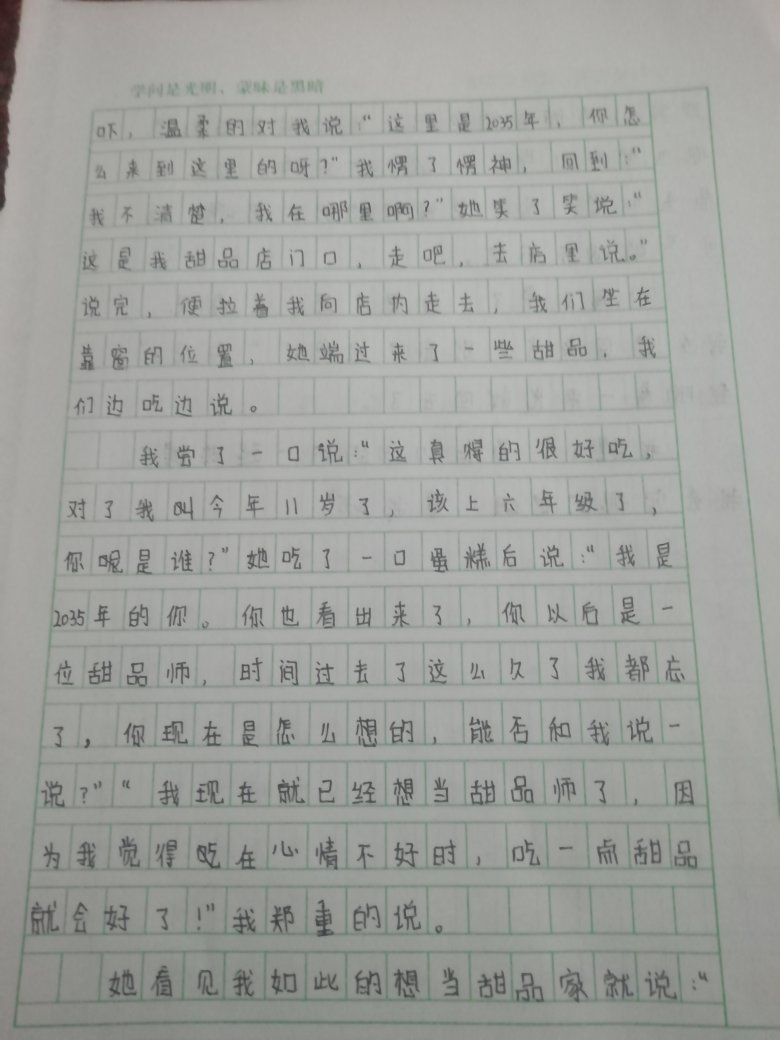 学问是光明、蒙昧是黑暗
吓，温柔的对我说：“这里是2035年，你怎
么来到这里的呀？”我愣了愣神，回到：“
我不清楚，我在哪里啊？”她笑了笑说：“
这是我甜品店门口，走吧，去店里说。”
说完，便拉着我向店内走去，我们坐在
靠窗的位置，她端过来了一些甜品，我
们边吃边说。
我尝了一口说：“这真得的很好吃，
对了我叫今年11岁了，该上六年级了，
你呢是谁？”她吃了一口蛋糕后说：“我是
2035年的你。你也看出来了，你以后是一
位甜品师，时间过去了这么久了我都忘
了，你现在是怎么想的，能否和我说一
说？”“我现在就已经想当甜品师了，因
为我觉得吃在心情不好时，吃一点甜品
就会好了！”我郑重的说。
她看见我如此的想当甜品家就说：“